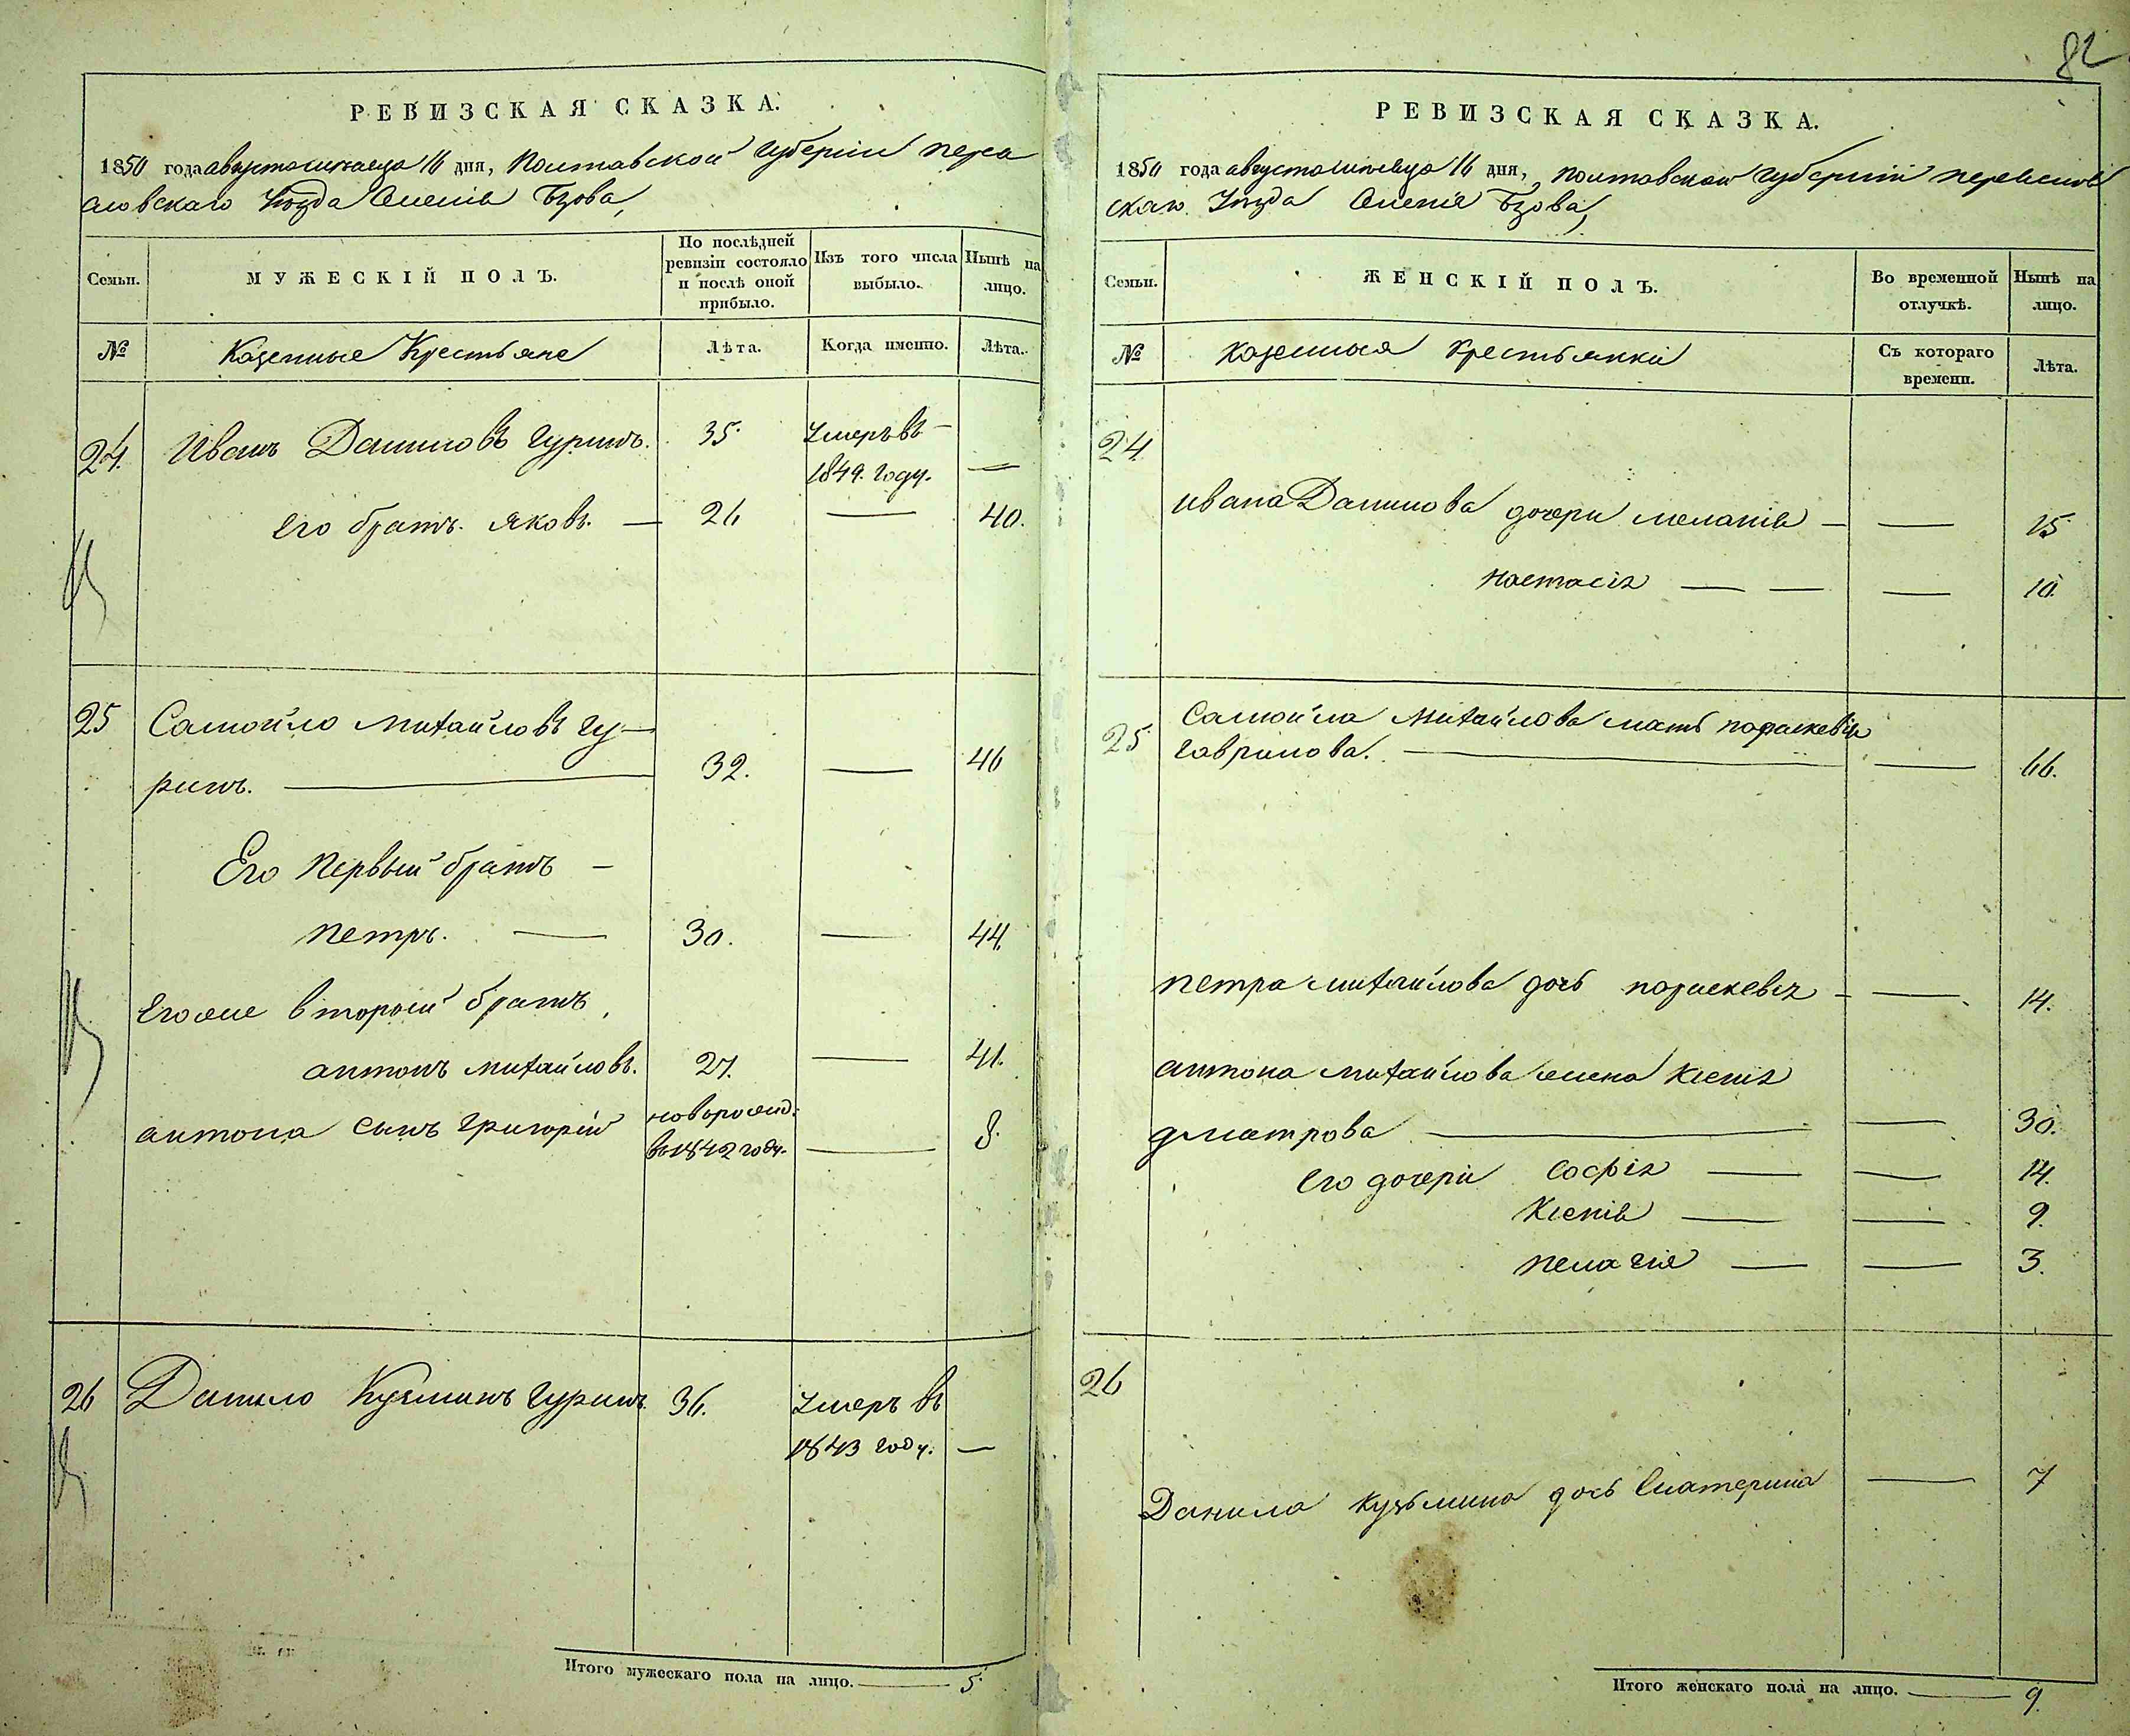 82
РЕВИЗСКАЯ СКАЗКА.
1850 года августа месяца 16 дня, Полтавской Губернии Перея
славскаго Уѣзда Селенія Бзова,
Семьи.
МУЖЕСКІЙ ПОЛЪ.
По послѣдней
ревизіи состояло
и послѣ оной
прибыло.
Изъ того числа
выбыло.
Нынѣ на
лицо.
№
Казенные Крестьяне
Лѣта.
Когда именно.
Лѣта.
24. Иванъ Даниловъ Гуринъ. 35. Умеръ въ —
1849. году. —
его братъ. Яковъ. — 26 — 40.
25 Самойло Михайловъ Гу—
ринъ. — 32. — 46
Его Первый братъ —
Петръ. — 30. — 44.
Его же второй братъ,
Антонъ Михайловъ. 27. — 41.
Антона сынъ Григорій новорожд:
въ 1842 году. — 8.
26 Данило Кузминъ Гуринъ 36. Умеръ въ
1843 году. —
Итого мужескаго пола на лицо. — 5.
РЕВИЗСКАЯ СКАЗКА.
1850 года августа месяца 16 дня, Полтавской Губерніи Переяслав
скаго Уѣзда Селенія Бзова,
Семьи.
ЖЕНСКІЙ ПОЛЪ.
Во временной
отлучкѣ.
Нынѣ на
лицо.
№
Казенныя Крестьянки
Съ котораго
времени.
Лѣта.
24
Ивана Данилова дочери Меланія — — 15
Настасія — — — 10.
25 Самойла Михайлова мать Параскевія
Гаврилова. — — 66.
Петра Михайлова дочь Параскевія — — 14.
Антона Михайлова жена Ксенія
Дматрова — — 30.
Его дочери Софія — — 14.
Ксенія — — 9.
Пелагія — — 3.
26
Данила Кузьмина дочь Екатерина — 7
Итого женскаго пола на лицо. — 9.